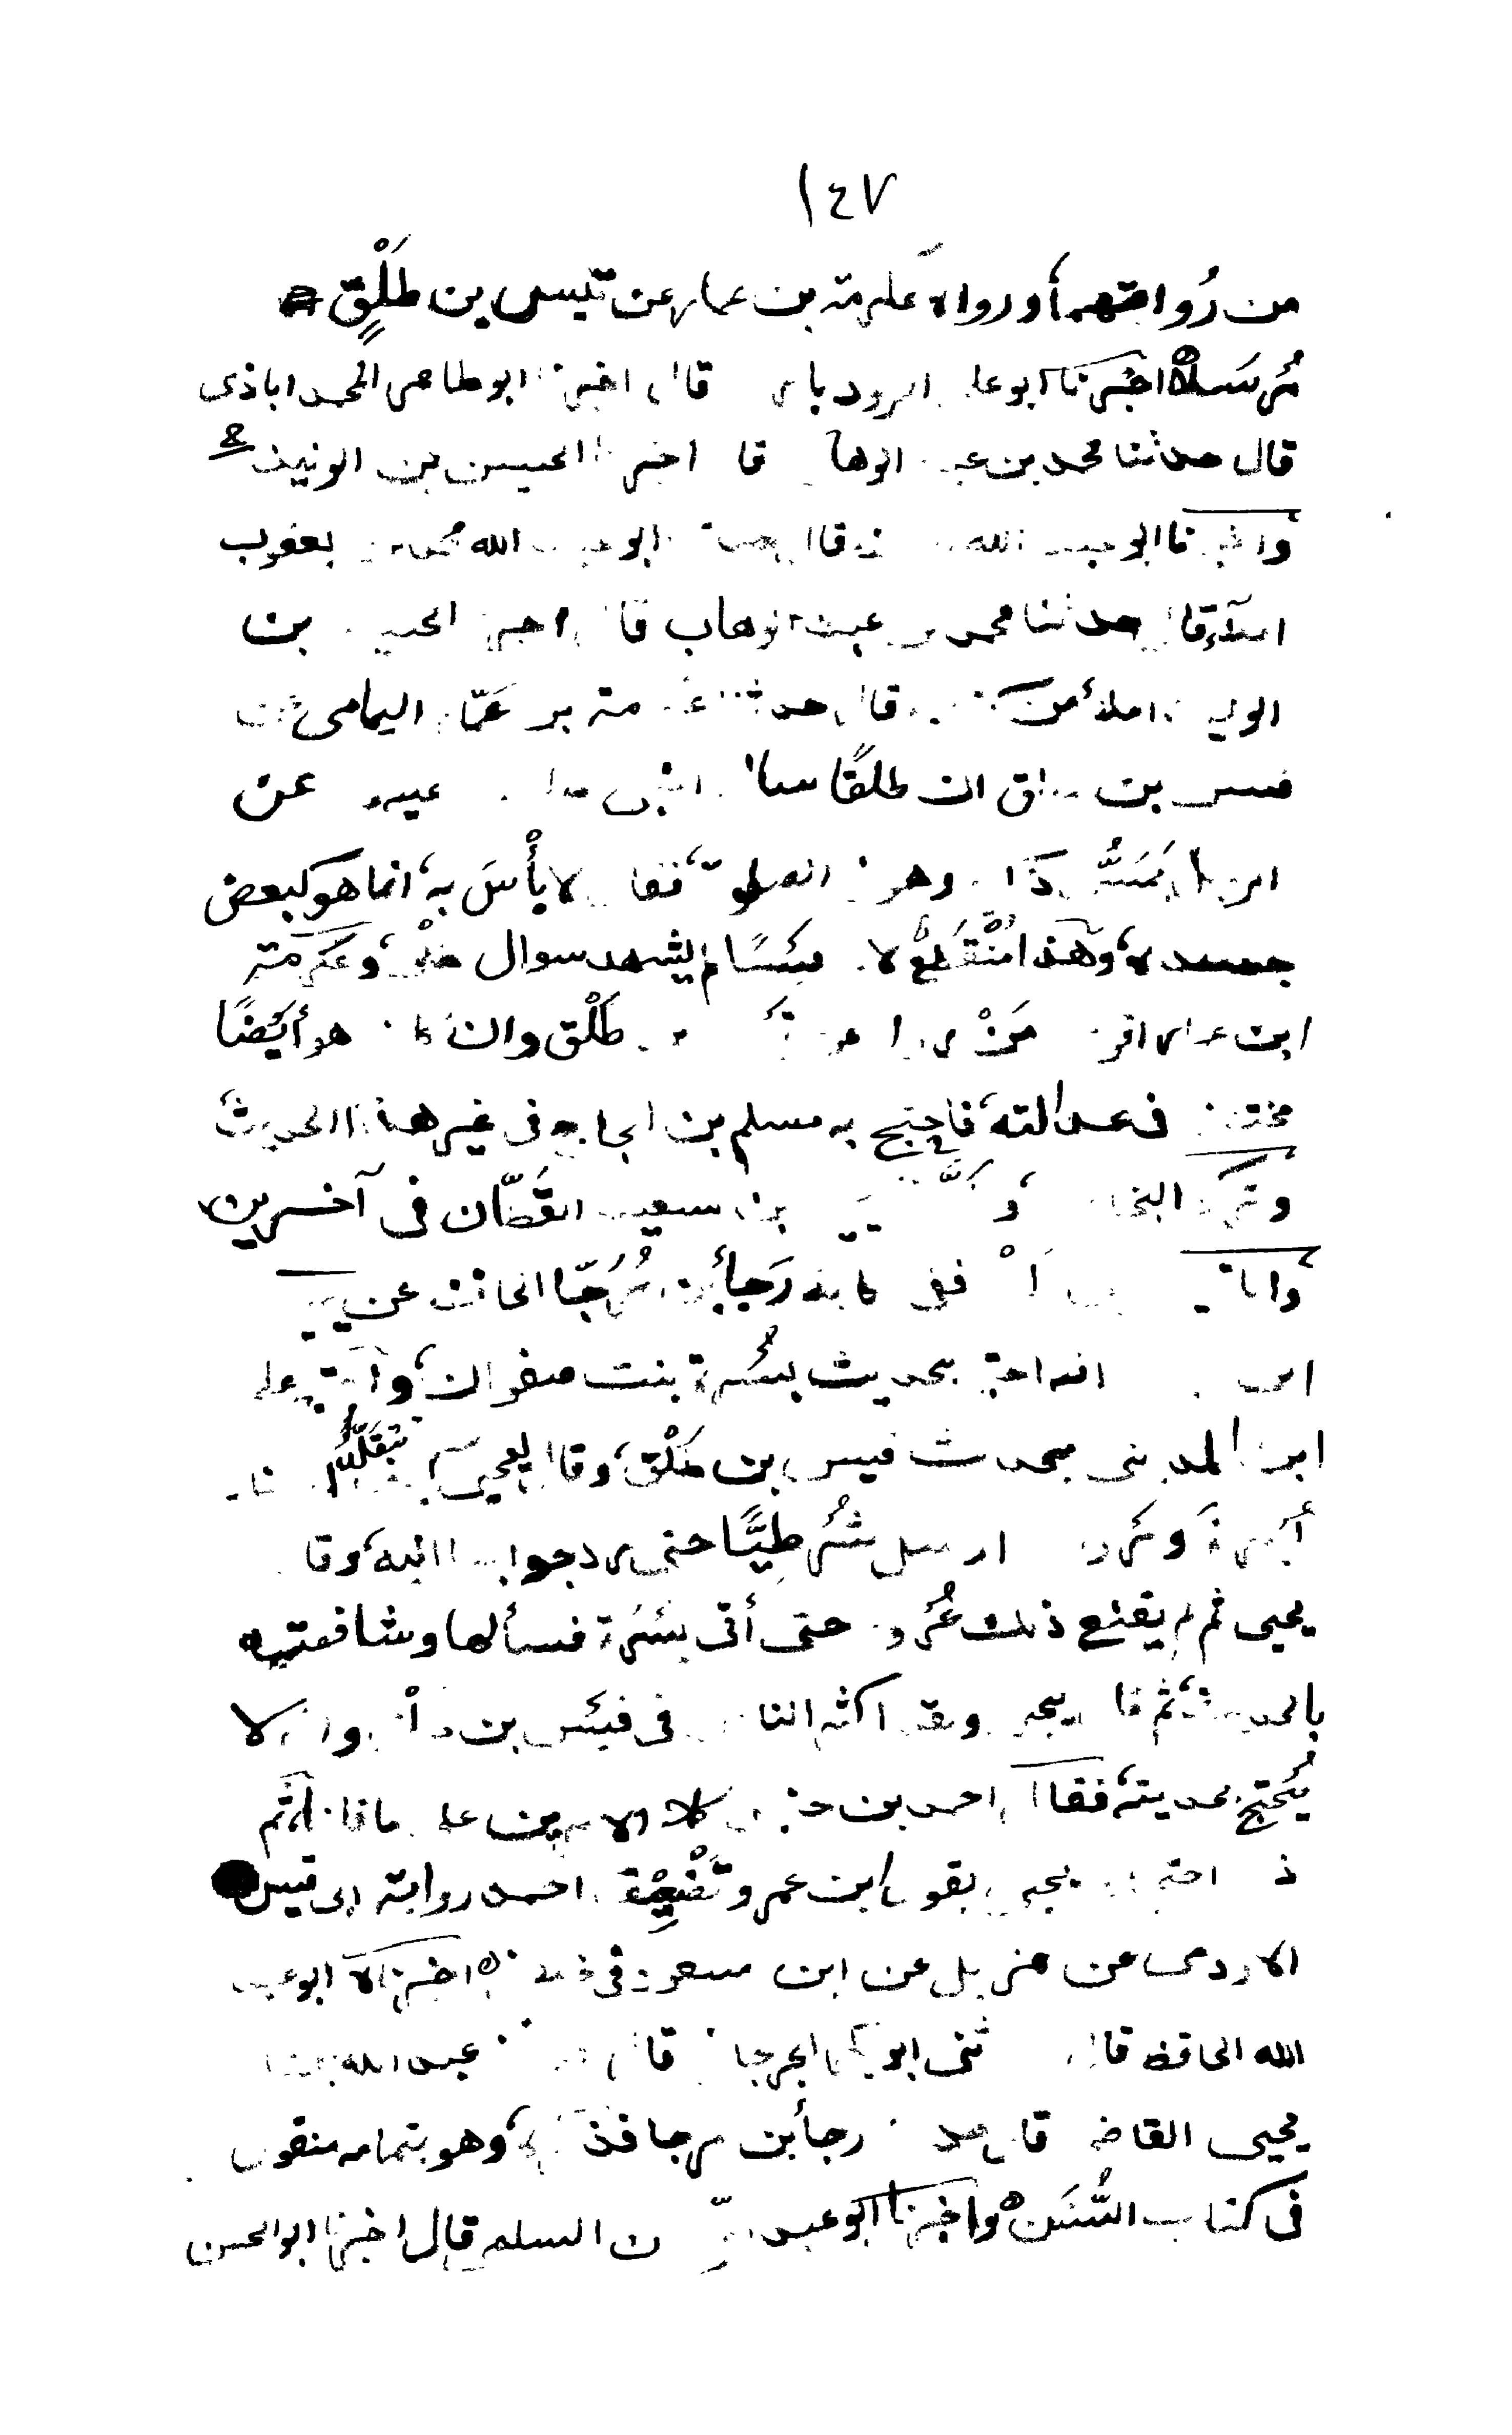 ١٤٧
من رُواتهما، ورواه عكرمة بن عمار عن قيس بن طَلْقٍ
مُرسَلاً اخبرنا ابو على الرودبارى قال اخبرنا ابو طاهر المحمداباذى
قال حدثنا محمد بن عبد الوهاب قال اخبرنا الحسين بن الوليد
واخبرنا ابو عبد الله قال حدثنا ابو عبد الله محمد بن يعقوب
املآءً قال حدثنا محمد بن عبد الوهاب قال اخبرنا الحسين بن
الوليد املأ من قال حدثنا عكرمة بن عمّار اليمامى عن
قيس بن طلق ان طلقًا سأل النبى صلى عليه عن
الرجل يَمَسُّ ذكره وهو فى الصلوة، فقال لا بأْسَ به، انما هو كبعض
جسده، وهذا مُنْقَطِعٌ لان قيسًا لم يشهد سوال طلق، وعكرمة
ابن عمار اقوى مَنْ رواه عن قيس بن طَلْق وان كان هو أيضًا
مختلف فى عدالته، فاحتج به مسلم بن الحجاج فى غير هذا الحديث
وتركه البخارى، بن سعيد القَطّان فى آخرين
واما رَجأ بن مُرَجّا الحافظ عن يحيى
ابن انه احتج بحديث بُسْرة بنت صفوان، واحتج على
ابن المدينى بحديث قيس بن طَلْق، وقال ليحيى كيف تتقلّد اسناد
بُسرةَ ومروان ارسل شُرطِيًّا حتى رد جوابها اليه، وقال
يحيى ثم لم يقنع ذلك عُروة حتى أتى بُسْرَة فسألها وشافهته
بالحديث، ثم قال يحيى ولقد اكثر الناس فى قيس بن طلْق وانه لا
يُحتج بحديثه، فقال احمد بن حنبل كلا الامرين على ما قلتم، ثم
ذكر احتجاج يحيى بقول ابن عمر وتَضْعِيْفَ احمد رواية ابى قيس
الاودى عن هزيل عن ابن مسعود فى ضده، اخبرناه ابو عبد
الله الحافظ قال حدثنى ابو بكر الجرجانى قال حدثنا عبد الله بن
يحيى القاضى قال حدثنا رجأ بن مرجا فذكره، وهو بتمامه منقول
فى كتاب السُّنَن واخبرنا ابو عبد الرحمن السلمى قال اخبرنا ابو الحسن